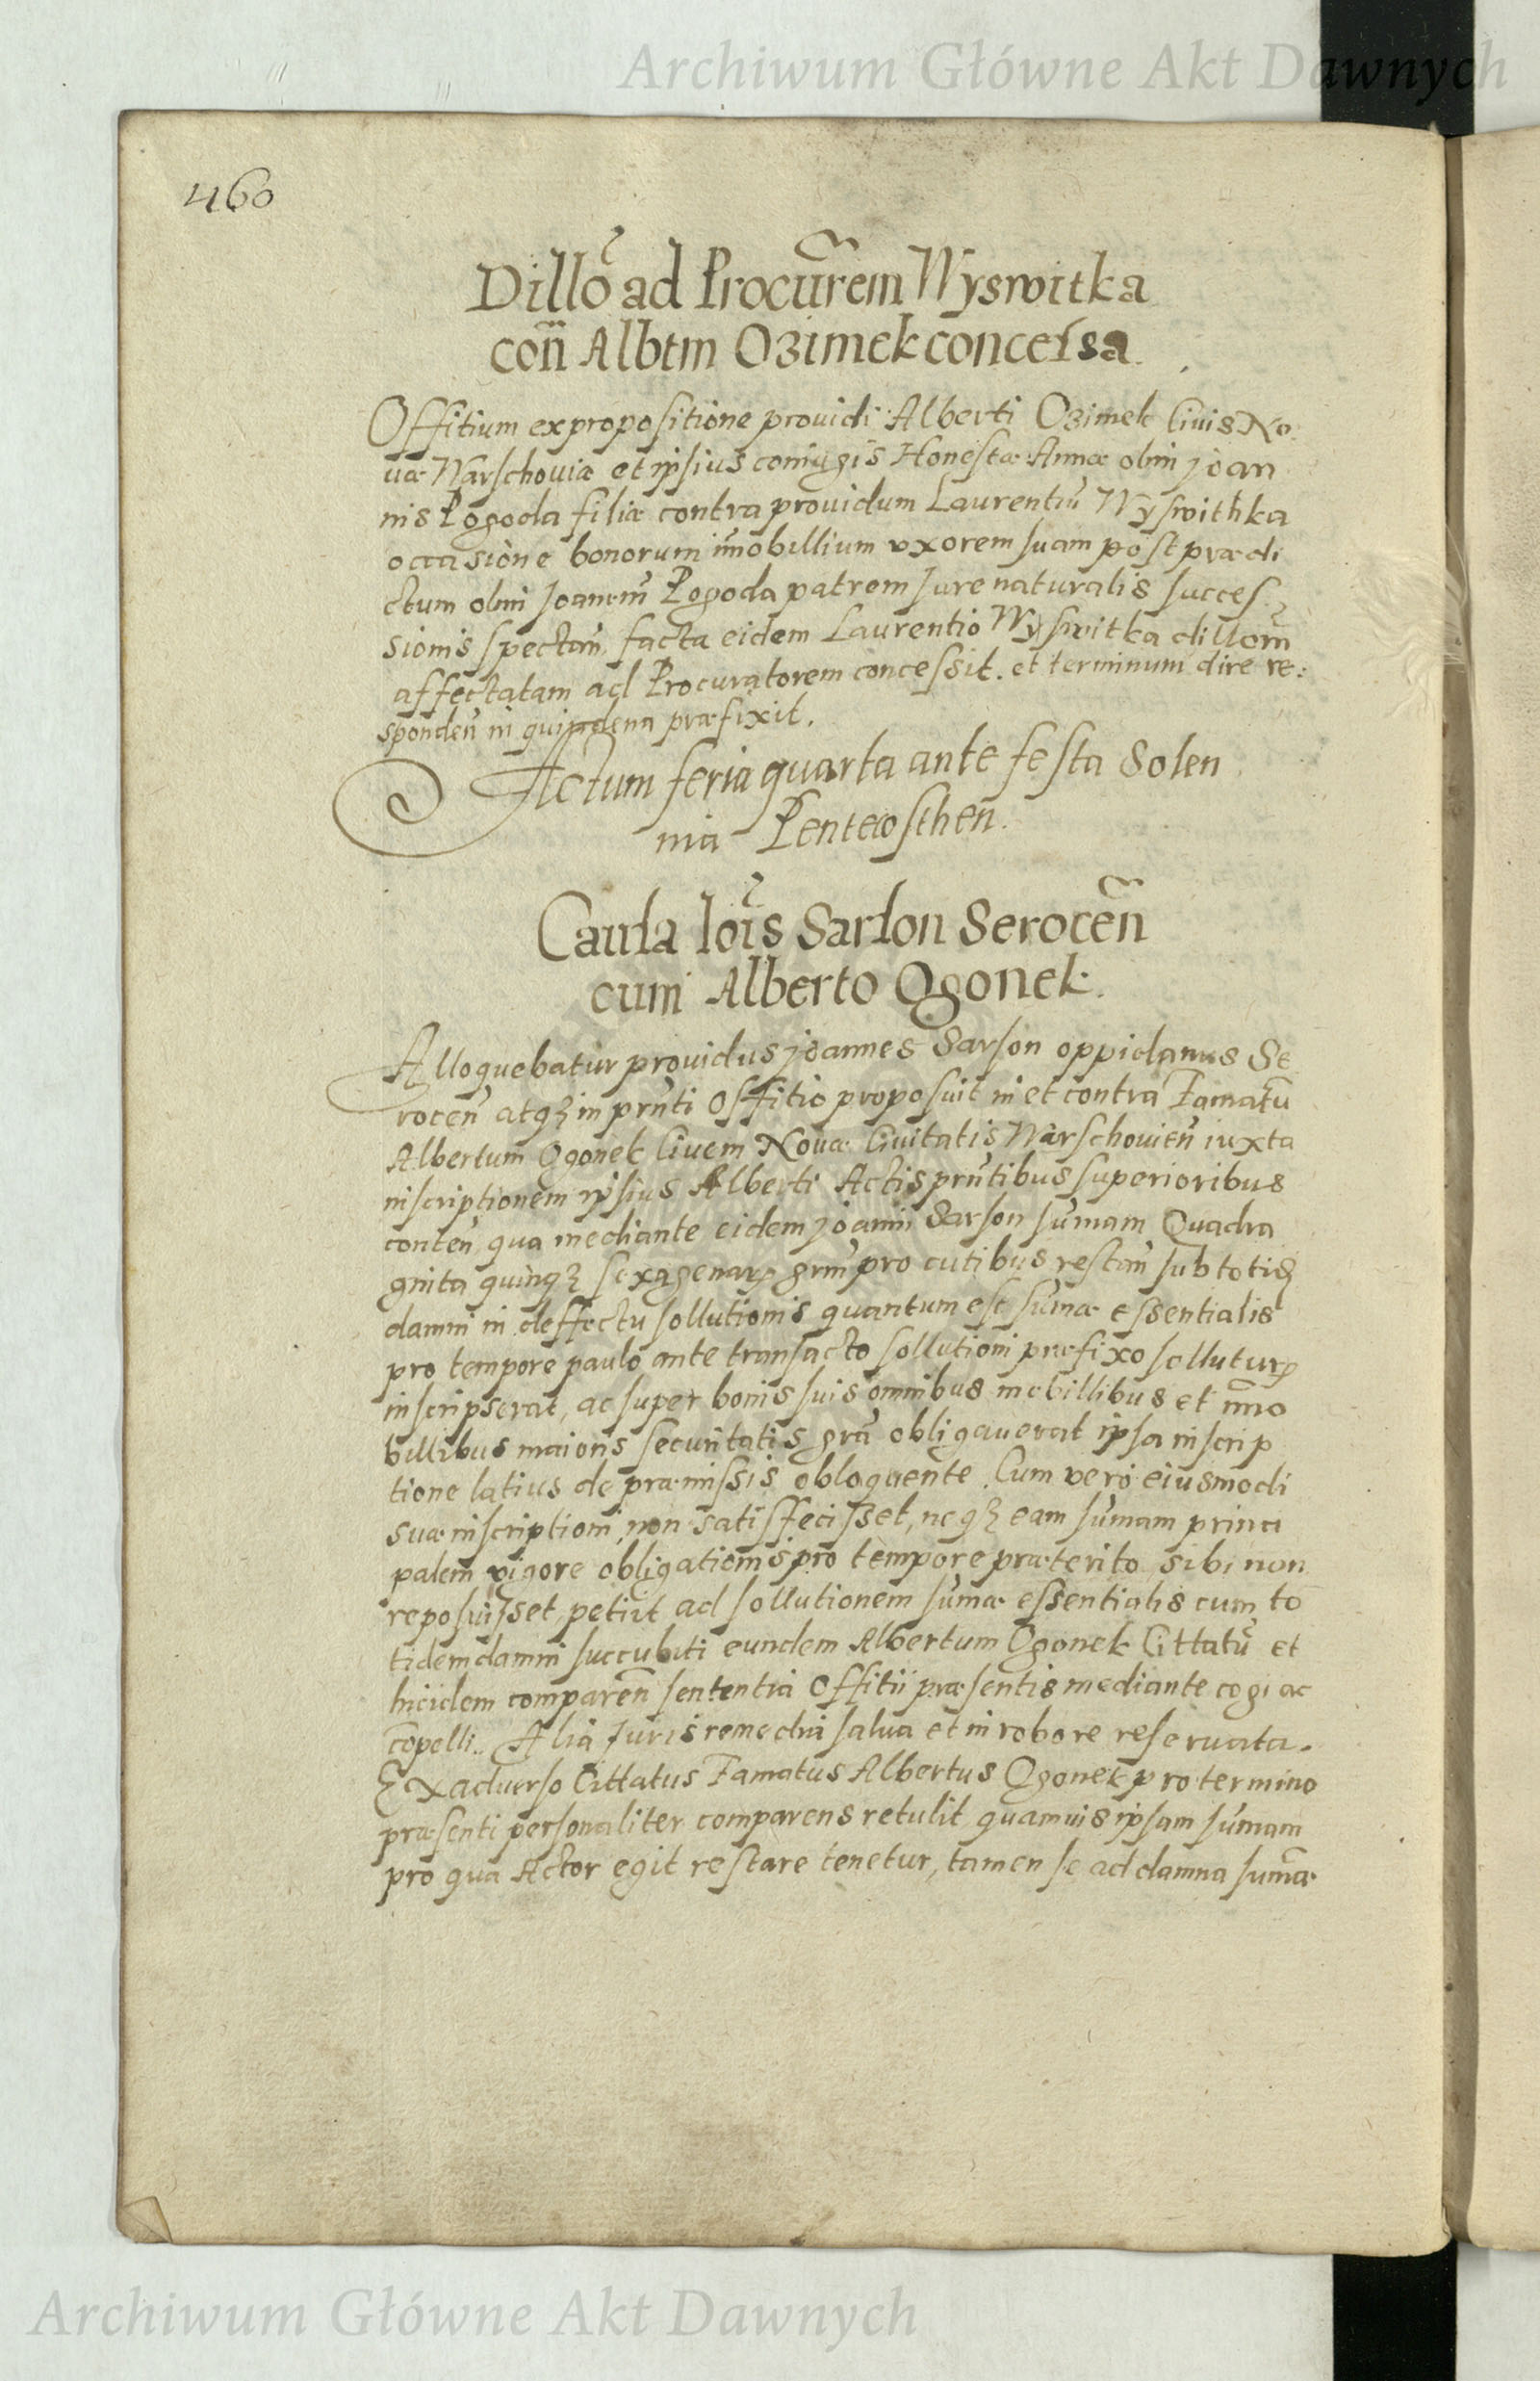 Archiwum Główne Akt Dawnych
460
Dillo᷒ ad Procu͂rem Wyswitka
con̄ Albtm Ozimek concessa
Offitium ex propositione prouidi Alberti Ozimek Ciuis No
uæ Warschouiæ et ipsius coniugis Honestæ Annæ olim Joan
nis Pogoda filiæ contra prouidum Laurentiū Wyswithka
occasione bonorum im̄obillium vxorem suam post prædi
ctum olim Joanem̄ Pogoda patrem Jure naturalis succes
sionis spectan̄. facta eidem Laurentio Wyswitka dillom̄
affectatam ad Procuratorem concessit. et terminum dire re:
sponden̄ in quindena præfixit.
Actum feria quarta ante festa Solen
nia Pentecosthen.
Causa Jois Sarson Serocen̄
cum Alberto Ogonek.
Alloquebatur prouidus Joannes Sarson oppidanus Se
rocen̄ atqꝫ in prn̄ti Offitio proposuit in et contra Famatū
Albertum Ogonek Ciuem Nouæ Ciuitatis Warschouien̄ iuxta
inscriptionem ipsius Alberti Actis prn̄tibus superioribus
conten̄, qua mediante eidem Joanni Sarson sum̄am Quadra
gnita quinqꝫ sexagenarꝝ grm̄ pro cutibus restan̄ sub totid
damni in deffectu sollutionis quantum est sum̄æ essentialis
pro tempore paulo ante transacto sollutioni præfixo solluturꝝ
inscripserat, ac super bonis suis omnibus mobillibus et im̄o
billibus maioris securitatis gra᷒ obligauerat ipsa inscrip
tione latius de præmissis obloquente. Cum vero eiusmodi
suæ inscriptioni non satisfecisset, neqꝫ eam sum̄am princi
palem vigore obligationis pro tempore præterito sibi non
reposuisset, petiit ad sollutionem sum̄æ essentialis cum to
tidem damni succubiti eundem Albertum Ogonek Cittatū et
hicidem comparen̄ sententia Offitii præsentis mediante cogi ac
cōpelli. Alia Juris remedia salua et in robore reseruata.
Ex aduerso Cittatus Famatus Albertus Ogonek pro termino
præsenti personaliter comparens retulit, quamuis ipsam sum̄am
pro qua Actor egit restare tenetur, tamen se ad damna sum̄æ
Archiwum Główne Akt Dawnych